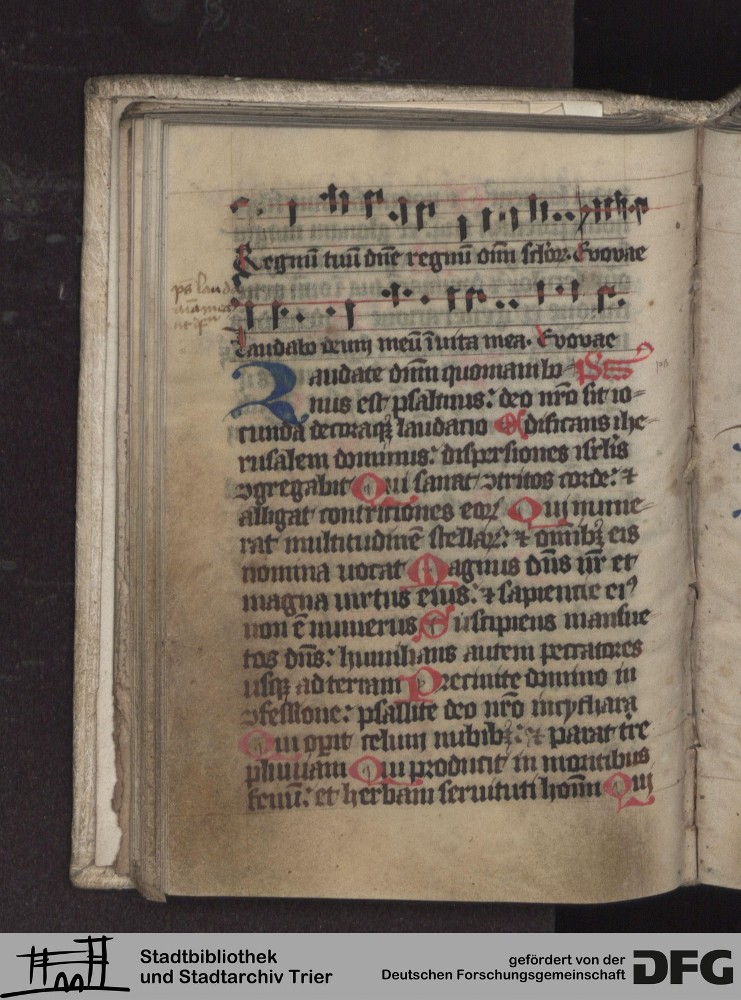 Regnū tuū dn̄e regnū oīm sc̄lor̄. Evovae
ps lauda
aīa mea
Laudabo deum meū ī uita mea. Evovae
Laudate dn̄m quoniam bo Ps̄
nus est psalmus: deo nr̄o sit io-
cunda decoraqꝫ laudatio Edificans ihe-
rusalem dominus: dispersiones isrl̄is
ꝯgregabit Qui sanat ꝯtritos corde: ⁊
alligat contritiones eoꝝ Qui nume-
rat multitudinē stellaꝝ: ⁊ omībꝫ eis
nomina uocat Magnus dn̄s nr̄ et
magna uirtus eius: ⁊ sapientie eiꝰ
non ē numerus Suscipiens mansue
tos dn̄s: humilians autem peccatores
usqꝫ ad terram Precinite domino in
ꝯfessione: psallite deo nr̄o in cythara
Qui opit celum nubibꝫ: et parat tr̄e
pluuiam Qui producit in montibus
fenū: et herbam seruituti hom̄ Qui
Stadtbibliothek
und Stadtarchiv Trier
gefördert von der
Deutschen Forschungsgemeinschaft
DFG